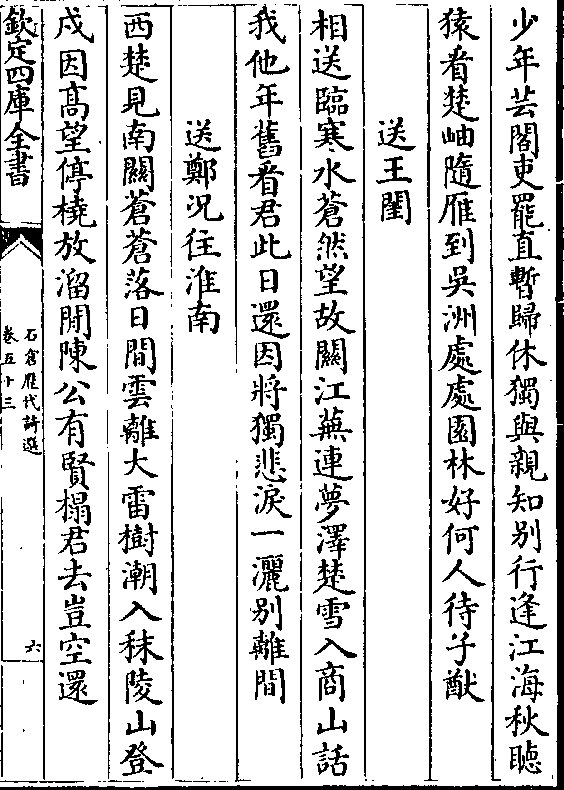 少年芸閣吏罷直暫歸休獨與親知别行逢江海秋聴
猿看楚岫隨雁到吳洲處處園林好何人待子猷
送王閨
相送臨寒水蒼然望故關江蕪連夢澤楚雪入商山話
我他年舊看君此日還因將獨悲淚一灑别離間
送鄭况往淮南
西楚見南關蒼蒼落日間雲離大雷樹潮入秣陵山登
戍因髙望停橈放溜閒陳公有賢榻君去豈空還
欽定四庫全書
石倉歴代詩選
卷五十三
六